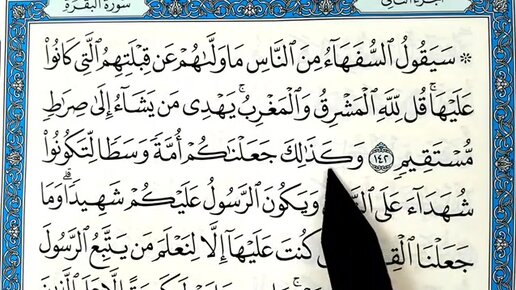 الجزء الثاني
سورة البقرة
۞ سَيَقُولُ ٱلسُّفَهَآءُ مِنَ ٱلنَّاسِ مَا وَلَّىٰهُمْ عَن قِبْلَتِهِمُ ٱلَّتِى كَانُوا۟
عَلَيْهَا ۚ قُل لِّلَّهِ ٱلْمَشْرِقُ وَٱلْمَغْرِبُ ۚ يَهْدِى مَن يَشَآءُ إِلَىٰ صِرَٰطٍ
مُّسْتَقِيمٍ ١٤٢ وَكَذَٰلِكَ جَعَلْنَٰكُمْ أُمَّةً وَسَطًا لِّتَكُونُوا۟
شُهَدَآءَ عَلَى وَيَكُونَ ٱلرَّسُولُ عَلَيْكُمْ شَهِيدًا ۗ وَمَا
جَعَلْنَا كُنتَ عَلَيْهَآ إِلَّا لِنَعْلَمَ مَن يَتَّبِعُ ٱلرَّسُولَ